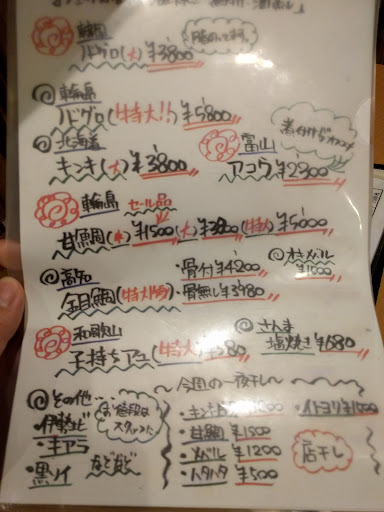 韓国
ノドグロ(大)¥3800
輪島
ノドグロ(特大!!)¥5800
北海道
キンキ(大)¥3800
煮付けがオススメ
富山
アコウ¥2300
輪島 セール品
甘鯛(小)¥1500(大)¥3200(特大)¥5000
高知
金目鯛(特大 ・骨付¥4200
・骨無し¥3980
オキメバル
¥1500
和歌山
子持ちアユ(特大)¥580
さんま
塩焼き¥680
その他
・伊勢エビ
・キアラ
・黒ソイ などなど
お値段は
スタッフに
今週の一夜干し
・キンキ
・甘鯛 ¥1500
・メバル ¥1200
・ハタハタ ¥500
・イトヨリ¥1500
店干し